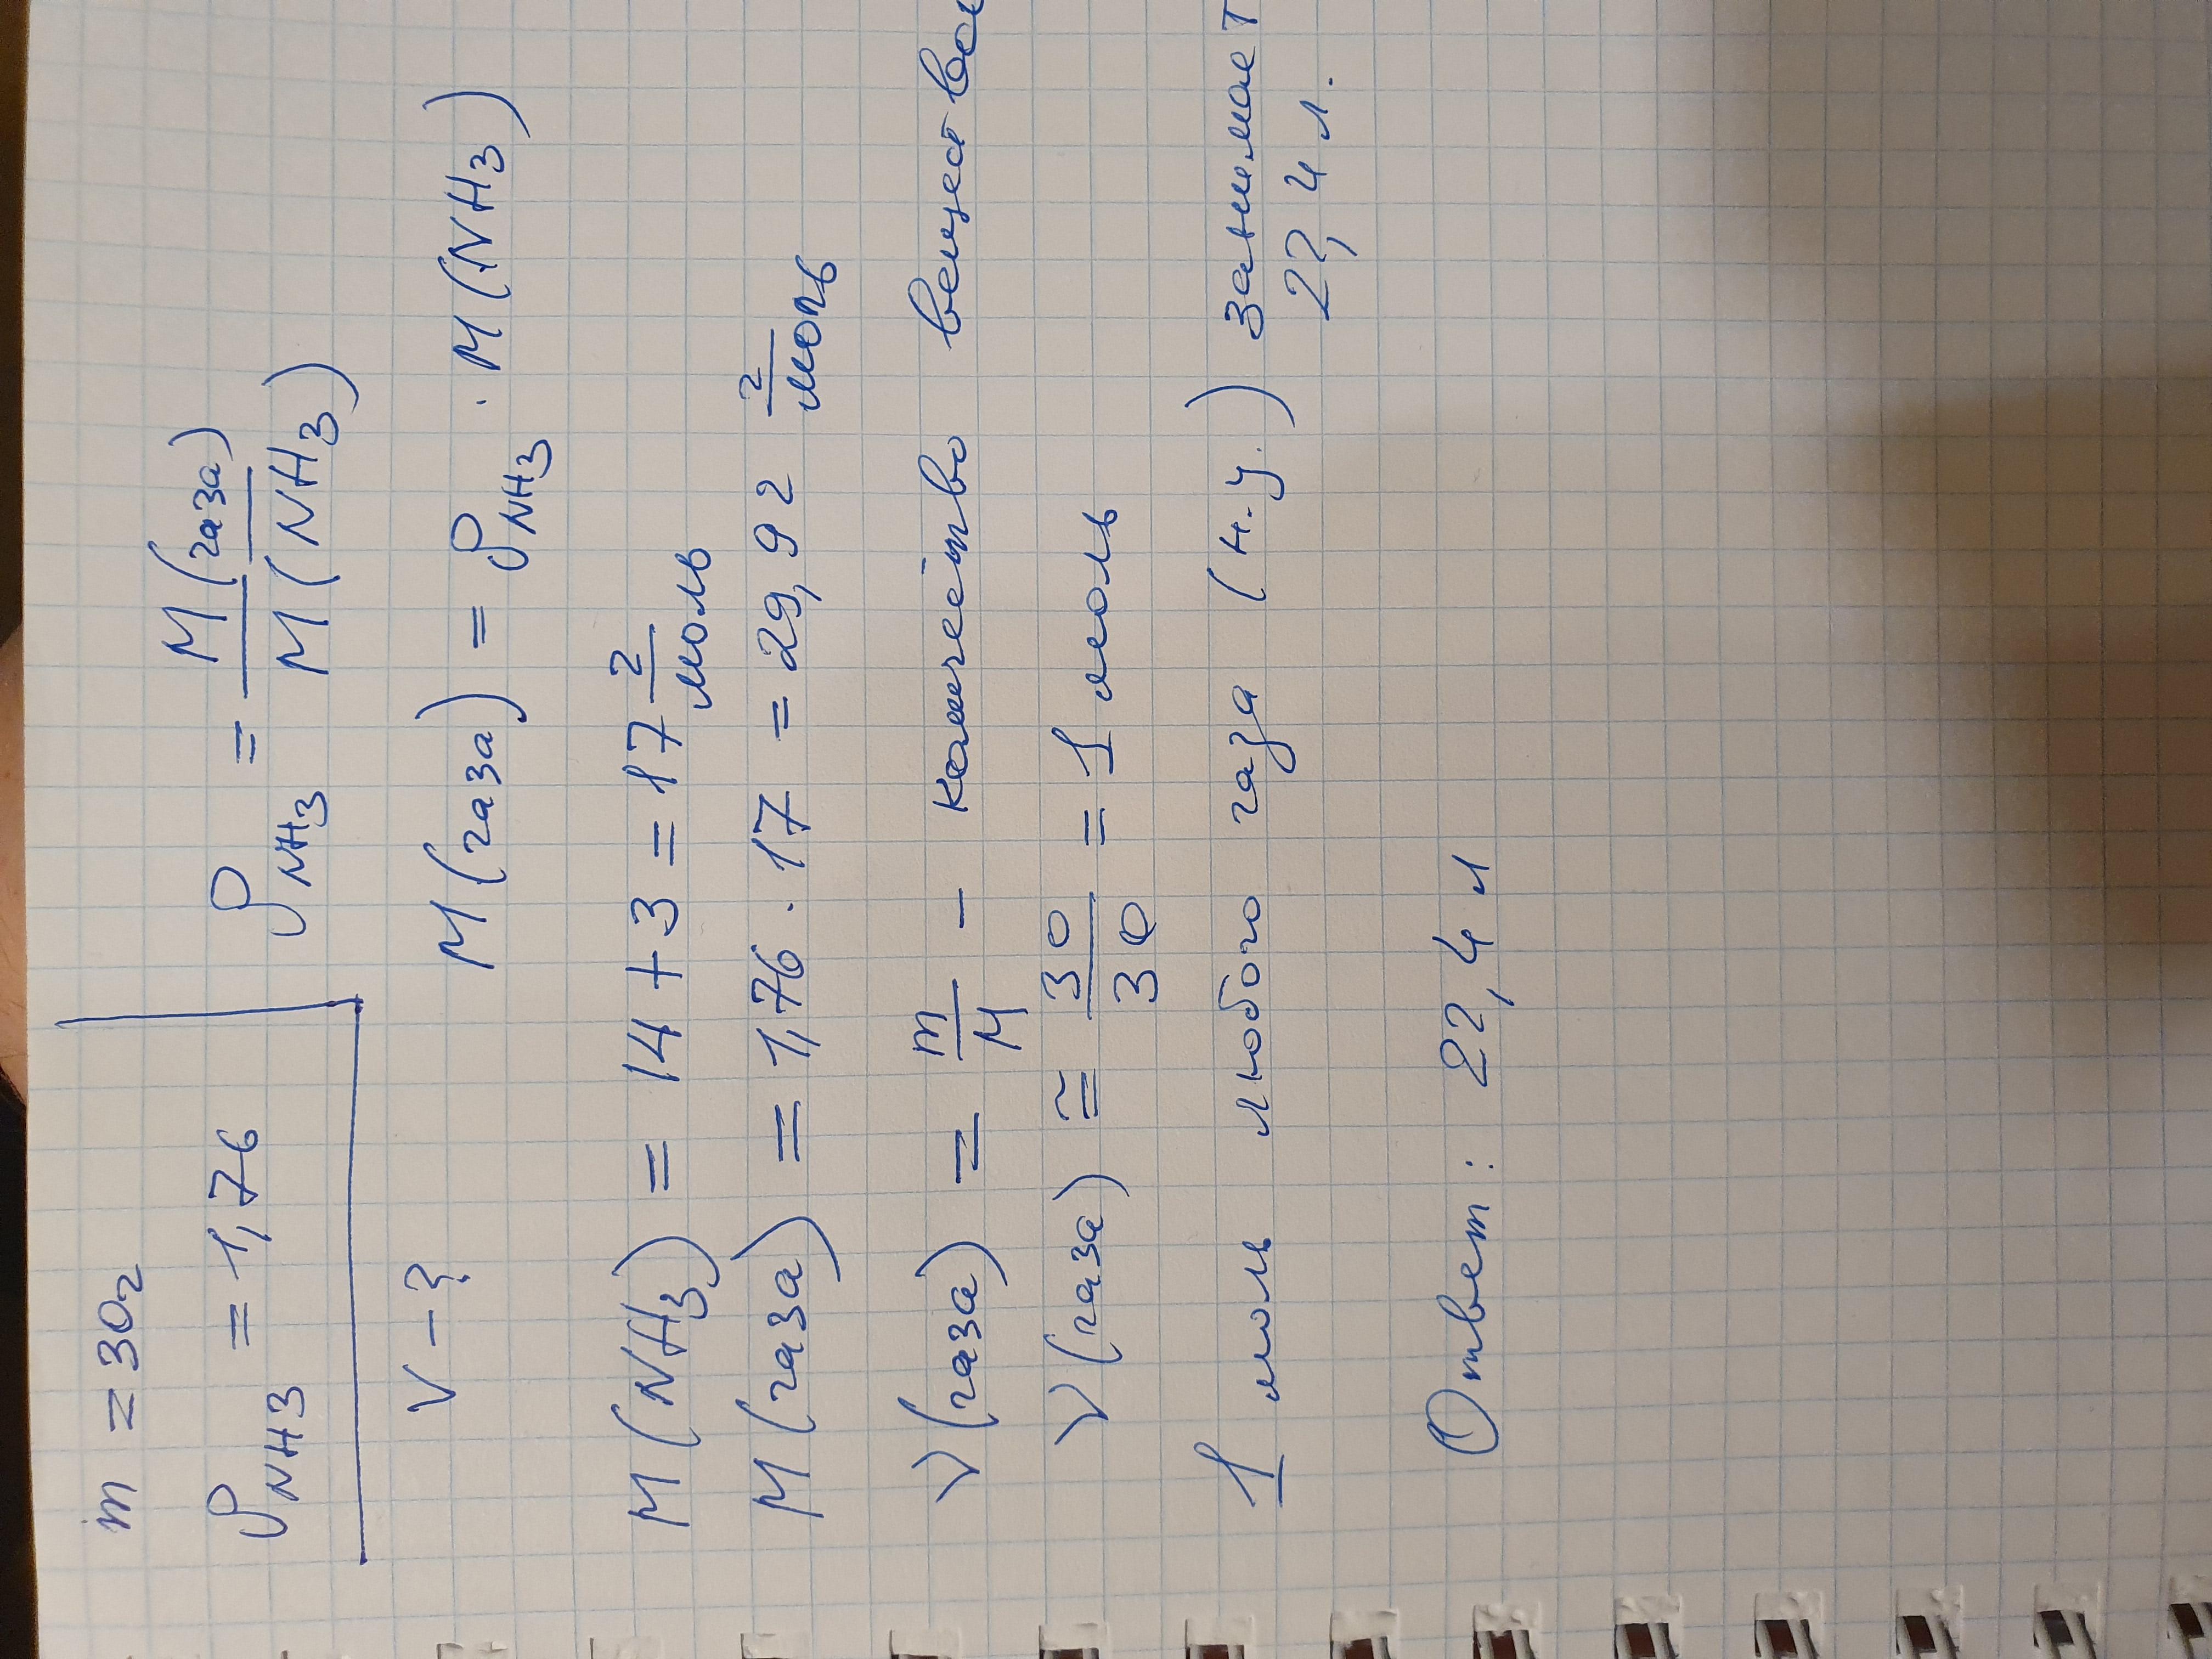 m = 30г
ρ NH3 = 1,76
V - ?
ρ NH3 = M(газа) / M(NH3)
M(газа) = ρ NH3 · M(NH3)
M(NH3) = 14 + 3 = 17 г/моль
M(газа) = 1,76 · 17 = 29,92 г/моль
ν(газа) = m/M - количество
ν(газа) ≅ 30/30 = 1 моль
1 моль любого газа (н.у.) занимает
22,4 л.
Ответ: 22,4 л